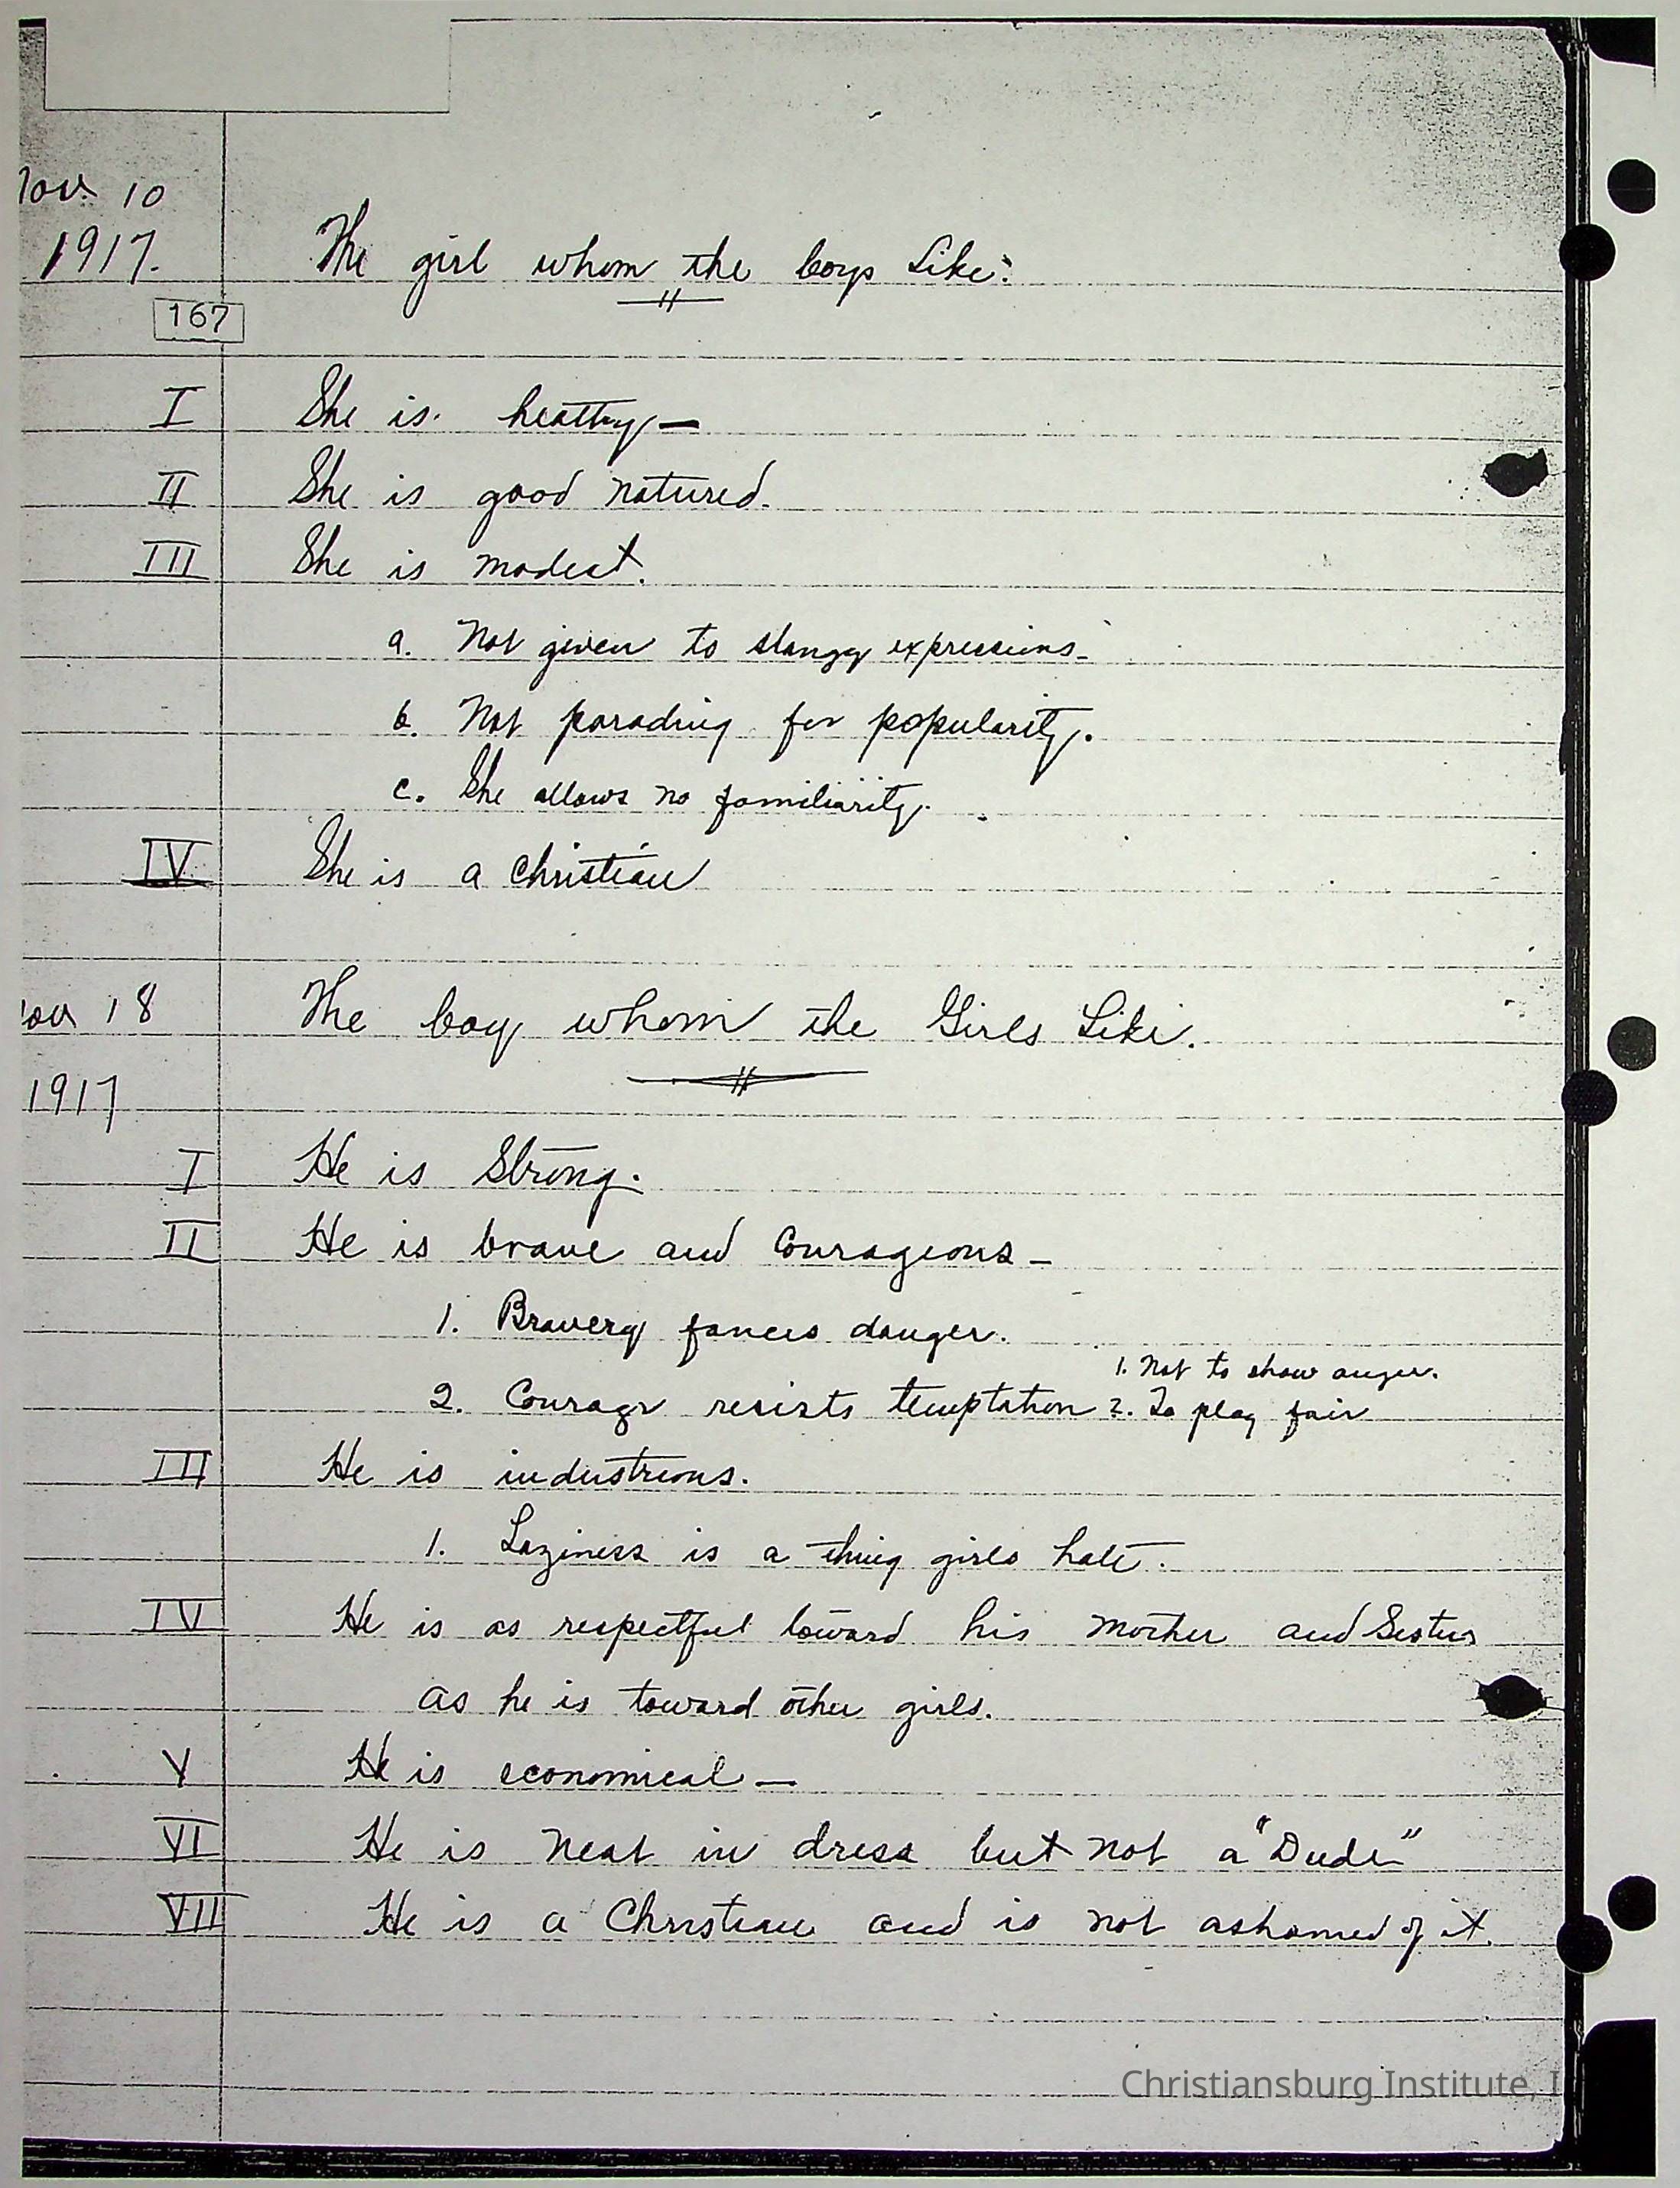 Nov. 10
1917. The girl whom the boys Like.
167
I She is healthy —
II She is good natured.
III She is modest.
a. Not given to slangy expressions.
b. Not parading for popularity.
c. She allows no familiarity.
IV She is a Christian
Nov 18 The boy whom the Girls Like.
1917
I He is Strong.
II He is brave and Courageous —
1. Bravery fances danger.
1. Not to show anger.
2. Courage resists temptation 2. To play fair
III He is industrious.
1. Laziness is a thing girls hate.
IV He is as respectful toward his Mother and Sisters
as he is toward other girls.
V He is economical —
VI He is neat in dress but not a "Dude"
VII He is a Christian and is not ashamed of it.
Christiansburg Institute, I